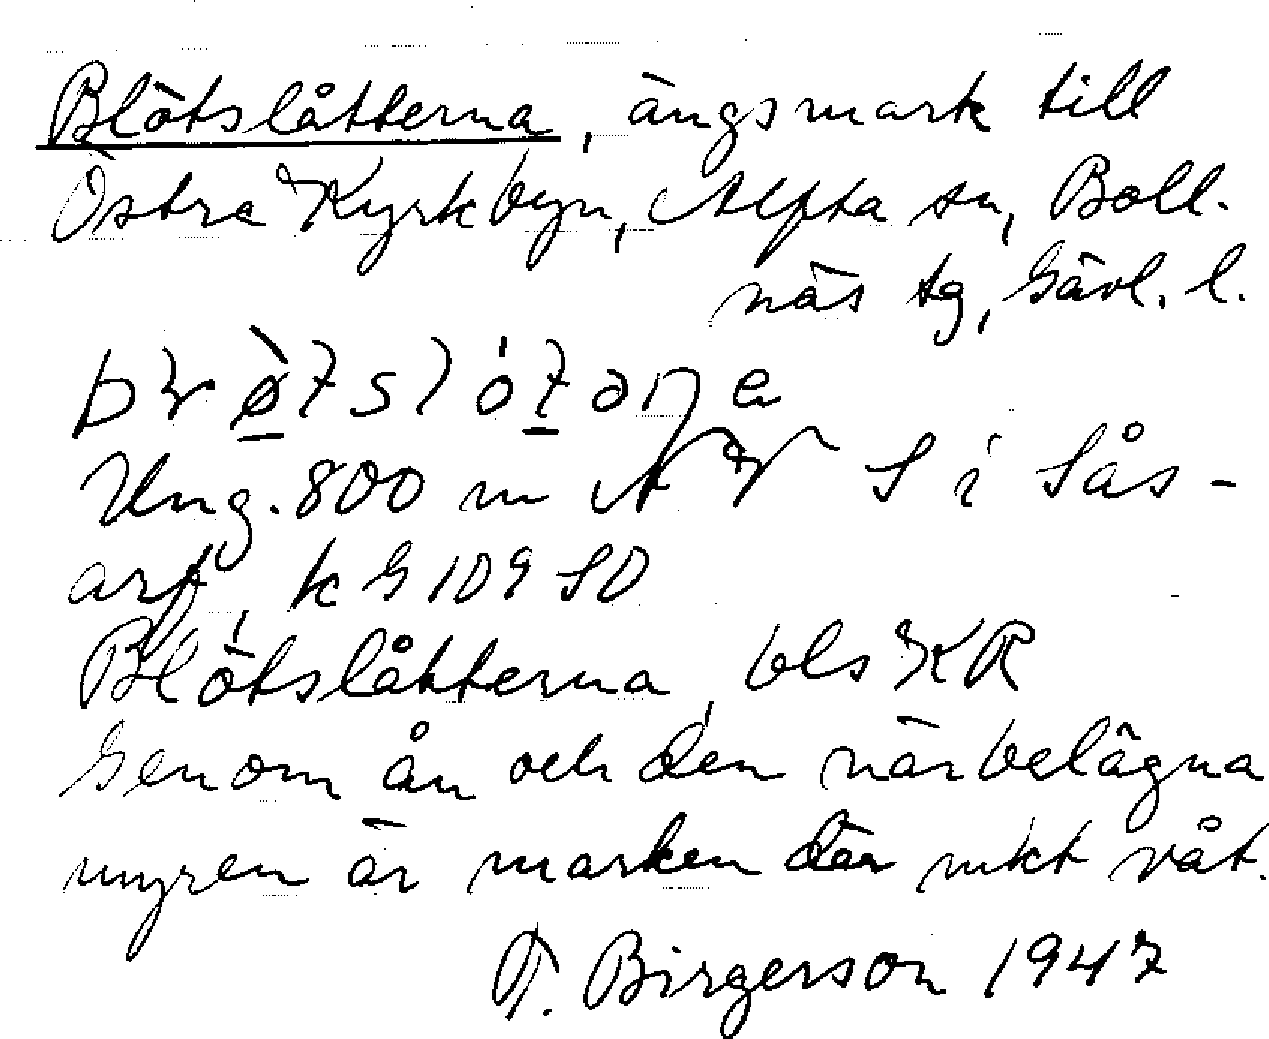 Blötslåtterna, ängsmark till
Östra Kyrkbyn, Alfta sn, Boll-
näs tg, Gävl. l.
Ung. 800 m NV S i Sås-
arf, k G 109 SO
Blötslåtterna, bls KR
Genom ån och den närbelägna
myren är marken där mkt våt.
T. Birgerson 1947